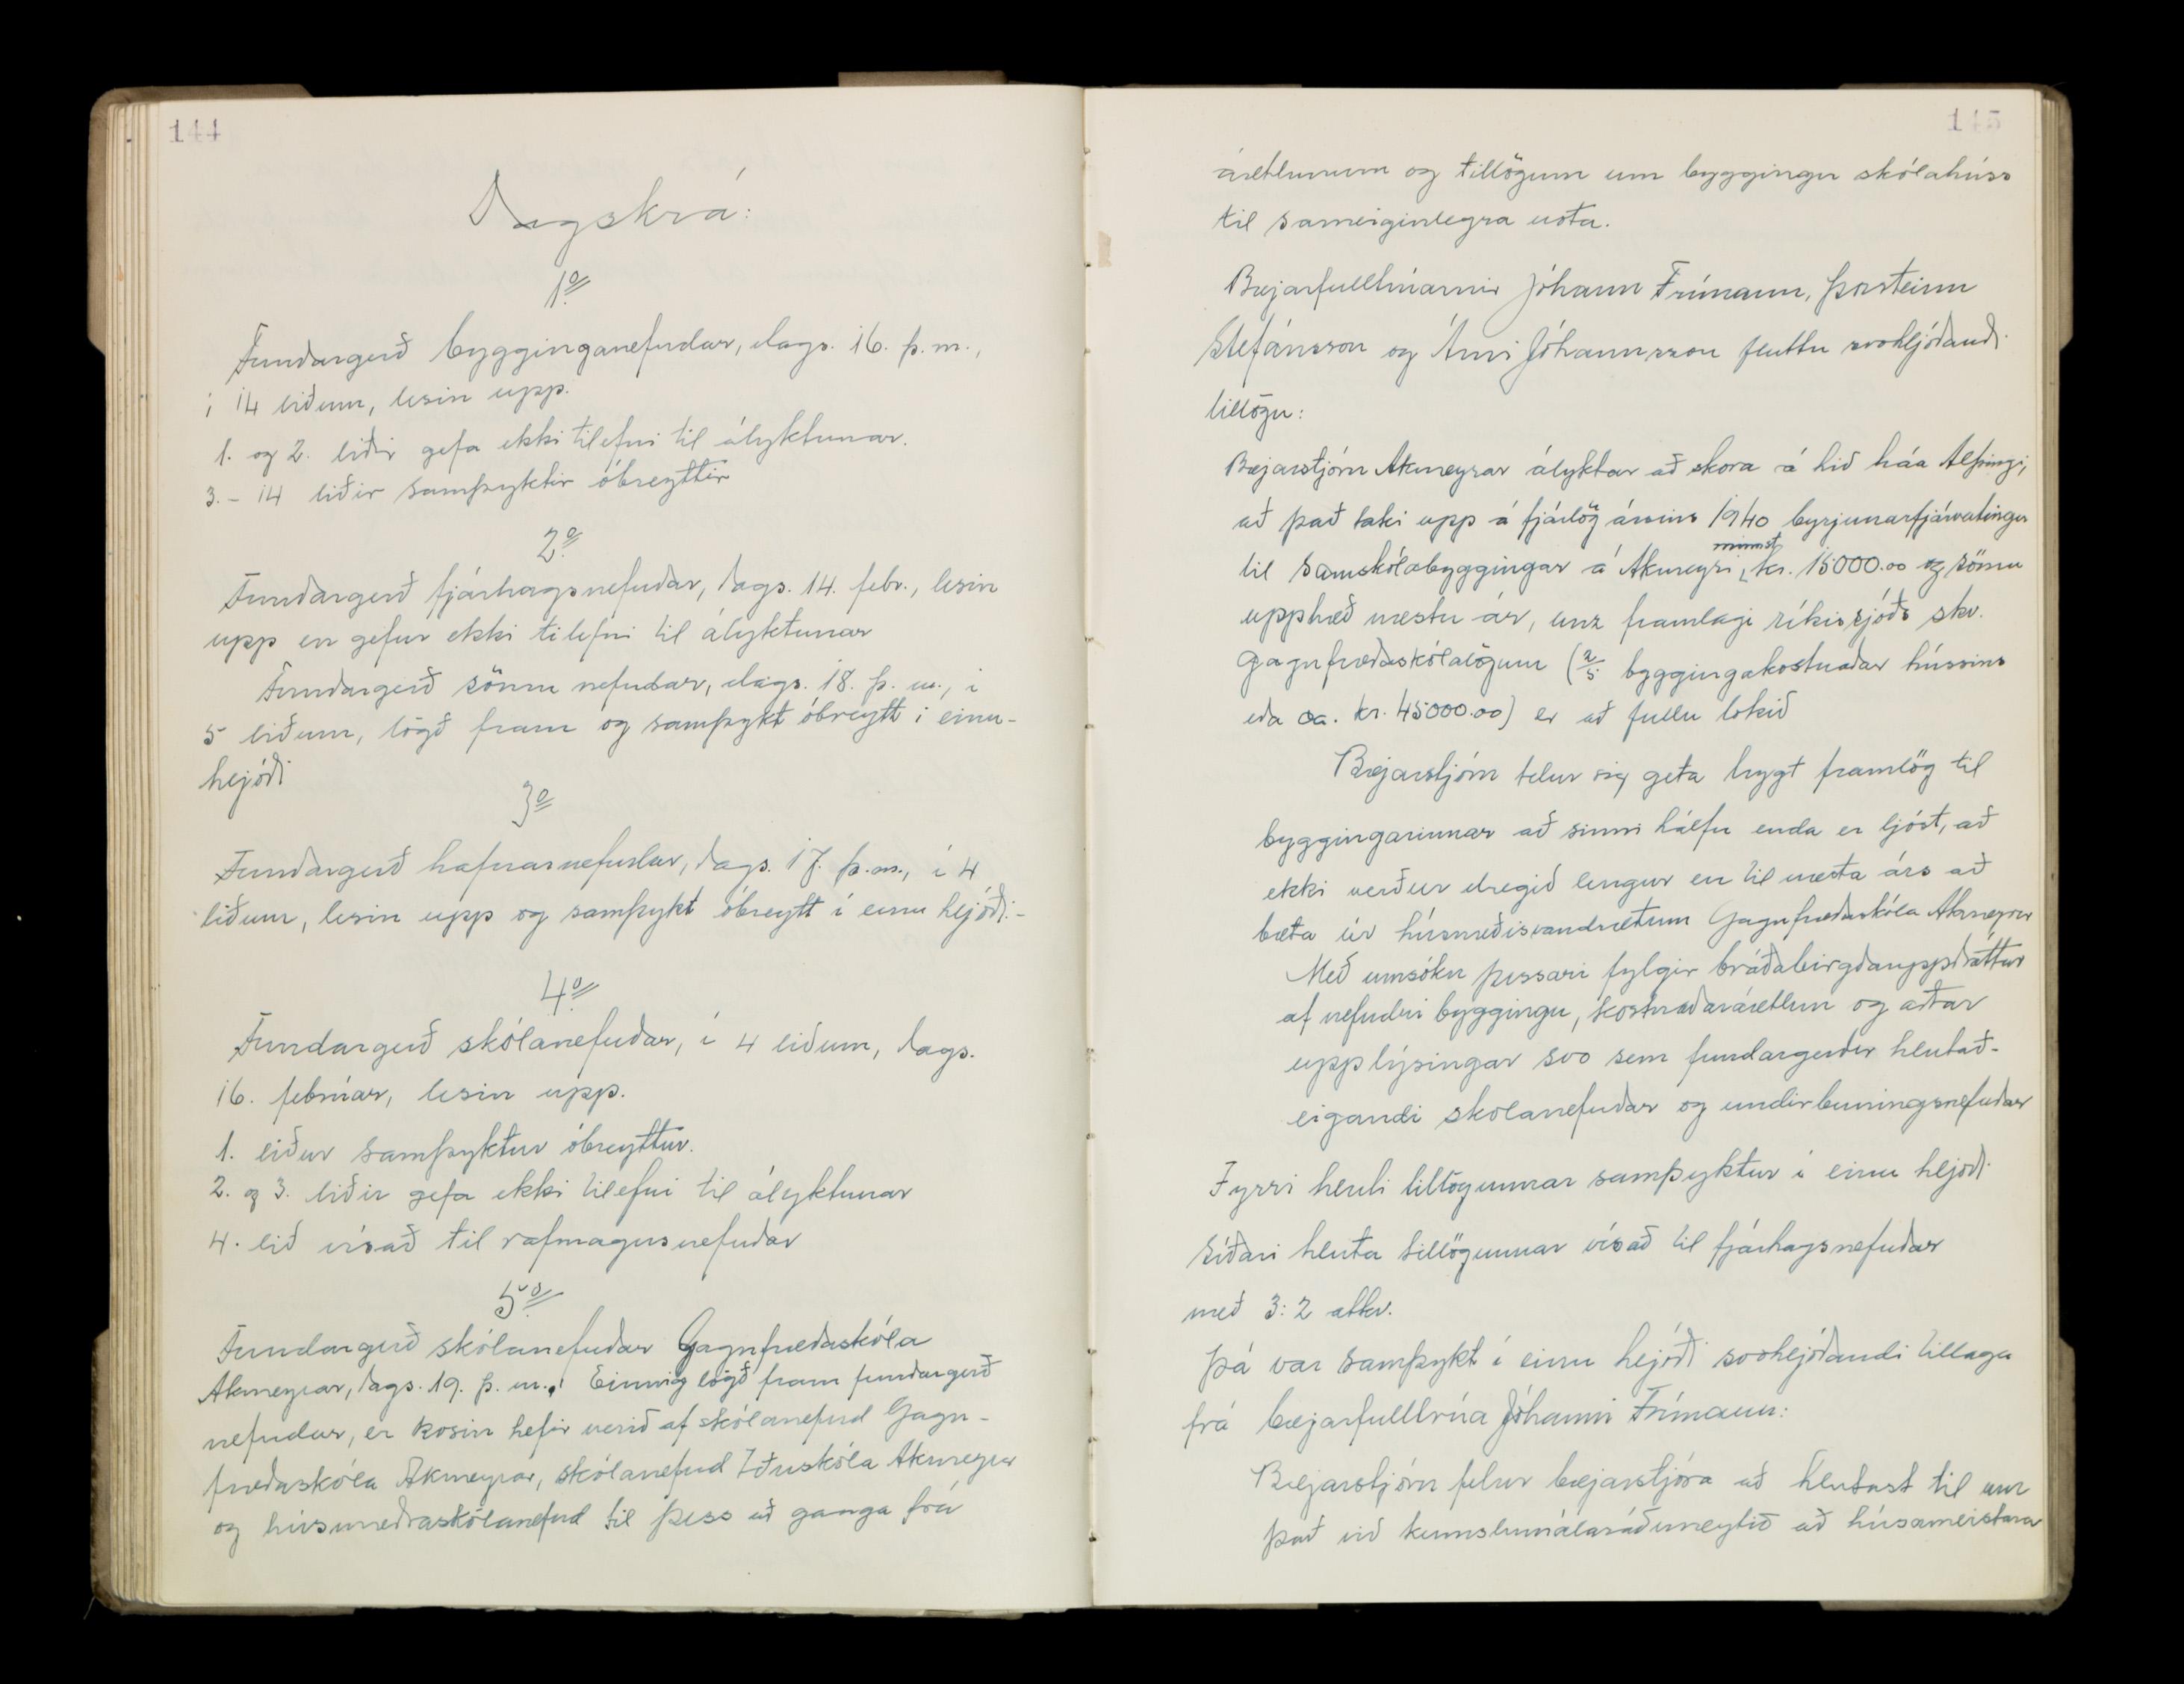 144
Dagskrá:
1o
Fundargerð bygginganefndar, dags. 16. þ.m.,
í 14 liðum, lesin upp.
1. og 2. liðir gefa ekki tilefni til ályktunar.
3. - 14 liðir samþyktir óbreyttir
2o
Fundargerð fjárhagsnefndar, dags. 14. febr., lesin
upp en gefur ekki tilefni til ályktunar
Fundargerð sömu nefndar, dags. 18. þ. m., í
5 liðum, lögð fram og samþykt óbreytt í einu-
hljóði
3o
Fundargerð hafnarnefndar, dags. 17. þ.m., í 4
liðum, lesin upp og samþykt óbreytt í einu hljóði.-
4o
Fundargerð skólanefndar, í 4 liðum, dags.
16. febrúar, lesin upp.
1. liður samþyktur óbreyttur.
2. og 3. liðir gefa ekki tilefni til ályktunar
4. lið vísað til rafmagnsnefndar
5o
Fundargerð skólanefndar Gagnfræðaskóla
Akureyrar, dags. 19. þ. m., Einnig lögð fram fundargerð
nefndar, er kosin hefir verið af skólanefnd Gagn-
fræðaskóla Akureyrar, skólanefnd Iðnskóla Akureyrar
og húsmæðraskólanefnd til þess að ganga frá
145
áætlunum og tillögum um byggingu skólahúss
til sameiginlegra nota.
Bæjarfulltrúarnir Jóhann Frímann, Þorsteinn
Stefánsson og Árni Jóhannsson fluttu svohljóðandi
tillögu:
Bæjarstjórn Akureyrar ályktar að skora á hið háa Alþingi,
að það taki upp á fjárlög ársins 1940 byrjunarfjárveitingu
til samskólabyggingar á Akureyri, minnst kr. 15000.00 og sömu
upphæð næstu ár, unz framlagi ríkissjóðs skv.
Gagnfræðaskólalögum (2/5 byggingakostnaðar hússins
eða ca. kr. 45000.00) er að fullu lokið
Bæjarstjórn telur sig geta trygt framlög til
byggingarinnar að sinni hálfu enda er ljóst, að
ekki verður dregið lengur en til næsta árs að
bæta úr húsnæðisvandræðum Gagnfræðaskóla Akureyrar
Með umsókn þessari fylgir bráðabirgðauppdráttur
af nefndri byggingu, kostnaðaráætlun og aðrar
upplýsingar svo sem fundargerðir hlutað-
eigandi skólanefndar og undirbúningsnefndar
Fyrri hluti tillögunnar samþyktur í einu hljóði
Síðari hluta tillögunnar vísað til fjárhagsnefndar
með 3:2 atkv.
Þá var samþykt í einu hljóði svohljóðandi tillaga
frá bæjarfulltrúa Jóhanni Frímann:
Bæjarstjórn felur bæjarstjóra að hlutast til um
það við kennslumálaráðuneytið að húsameistara